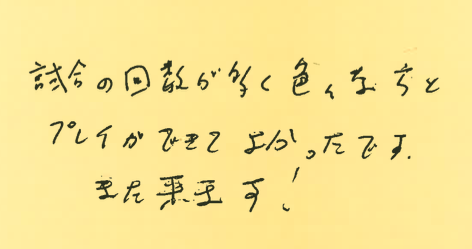 試合の回数が多く色々な方と
プレイができてよかったです.
また来ます!